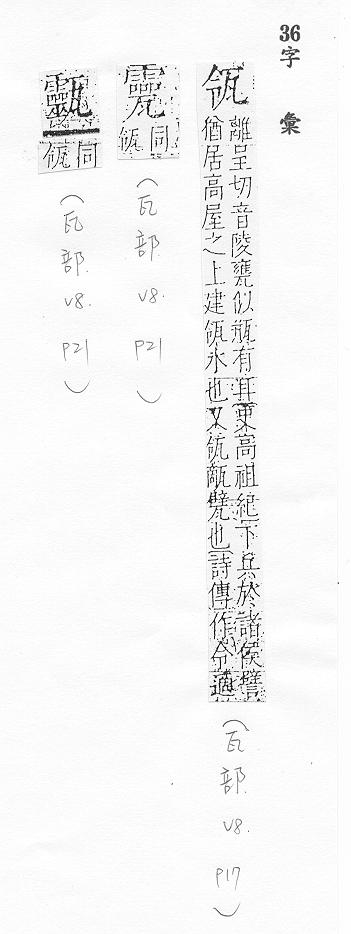 36字彙
瓴
離呈切音陵甕似瓶有耳漢高祖紀下兵於諸侯譬
猶居高屋之上建瓴水也又瓴甋甓也詩傳作令適
(瓦部 v8. P17)
同
瓴
(瓦部 v8. P21)
同
瓴
(瓦部 v8. P21)